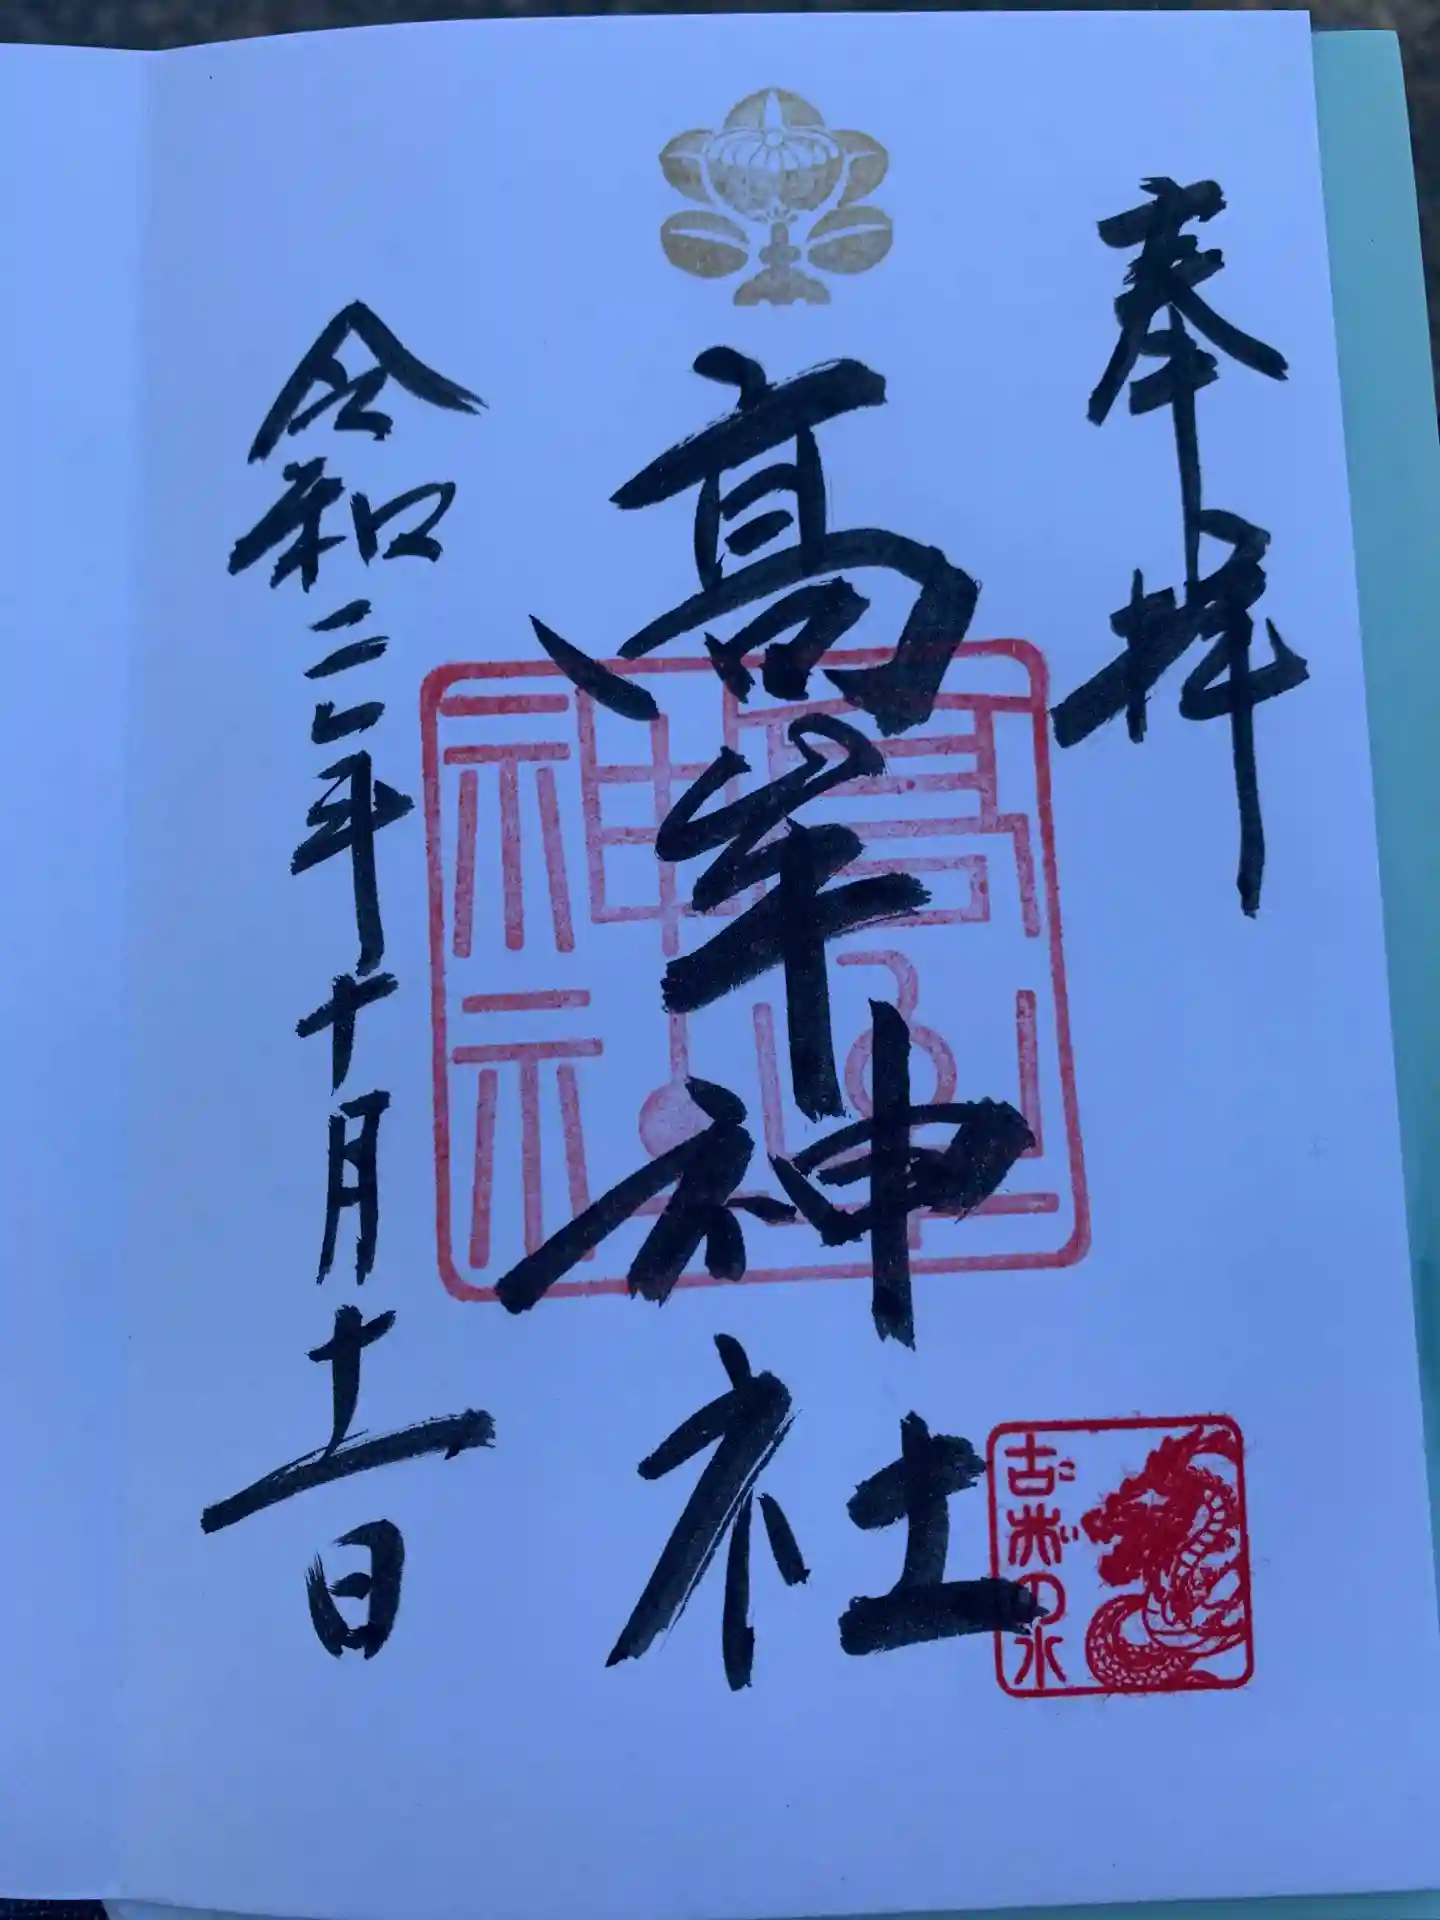 奉拝
高牟神社
令和二年十月十一日
高牟
神社
古井の水
こ
い